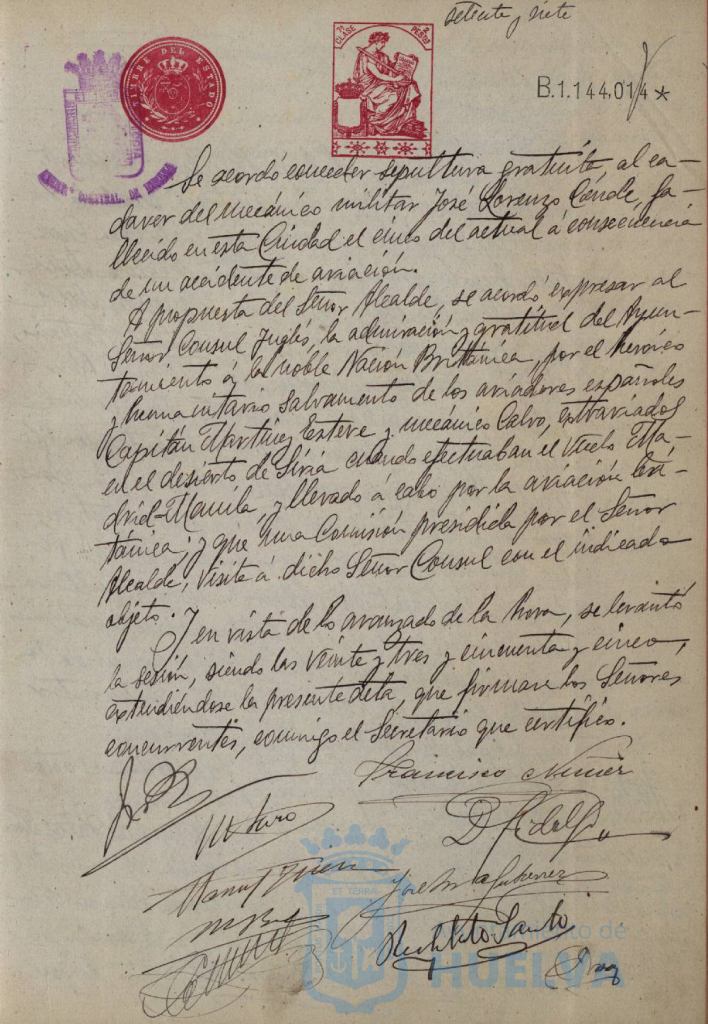 setenta y siete
7ª CLASE 2 PESETAS
TIMBRE DEL ESTADO
B.1.144,014 *
Se acordó conceder sepultura gratuita, al ca-
daver del mecánico militar José Lorenzo Conde, fa-
llecido en esta Ciudad el cinco del actual á consecuencia
de un accidente de aviación.
A propuesta del Señor Alcalde, se acordó expresar al
Señor Consul Inglés, la admiración y gratitud del Ayun-
tamiento á la noble Nación Británica, por el heróico
y humanitario salvamento de los aviadores españoles
Capitán Martínez Esteve y mecánico Calvo, extraviados
en el desierto de Siria cuando efectuaban el vuelo Ma-
drid-Manila, y llevado á cabo por la aviación bri-
tánica; y que una Comisión presidida por el Señor
Alcalde, visite á dicho Señor Consul con el indicado
objeto.
Y en vista de lo avanzado de la hora, se levantó
la sesión, siendo las veinte y tres y cincuenta y cinco,
extendiéndose la presente acta, que firman los Señores
concurrentes, conmigo el Secretario que certifico.
Francisco
José Mª Gutierrez
ET TERRA
Ayuntamiento de
HUELVA